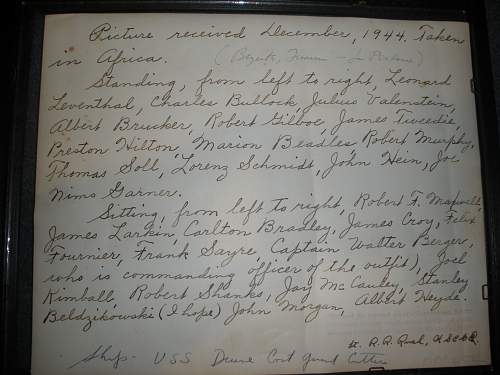 Picture received December, 1944. Taken
in Africa.
Standing, from left to right, Leonard
Leventhal, Charles Bullock, Julius Valenstein,
Albert Brucker, Robert Gilboe, James Tweedie,
Preston Hilton, Marion Beadles, Robert Murphy,
Thomas Soll, Lorenz Schmidt, John Hein, Joe
Nims Garner.
Sitting, from left to right, Robert F. Maxwell,
James Larkin, Carlton Bradley, James Croy, Felix
Fournier, Frank Sayre, Captain Walter Berger,
who is commanding officer of the outfit), Joel
Kimball, Robert Shanks, Jay McCauley, Stanley
Beldzikowski (I hope) John Morgan, Albert Heyde.
Lt. R. R.
Ship - USS Coast Guard Cutter